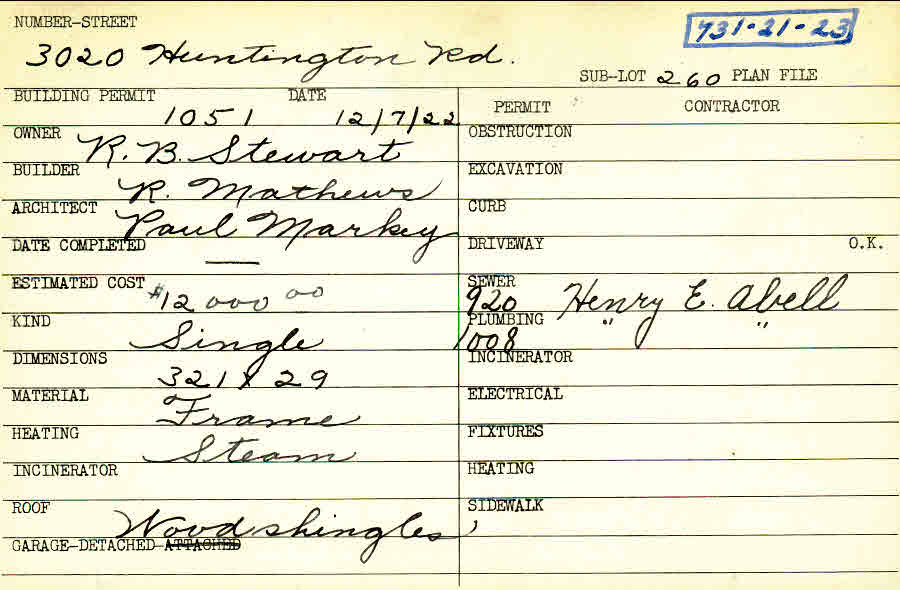 NUMBER-STREET
731-21-23
3020 Huntington Rd.
SUB-LOT 260 PLAN FILE
BUILDING PERMIT 1051 DATE 12/7/22
OWNER R. B. Stewart
BUILDER R. Mathews
ARCHITECT Paul Markey
DATE COMPLETED —
ESTIMATED COST $12 000 00
KIND Single
DIMENSIONS 32 x 29
MATERIAL Frame
HEATING Steam
INCINERATOR
ROOF Wood shingles
GARAGE-DETACHED-ATTACHED
PERMIT CONTRACTOR
OBSTRUCTION
EXCAVATION
CURB
DRIVEWAY O.K.
SEWER 920 Henry E. Abell
PLUMBING 1008 " "
INCINERATOR
ELECTRICAL
FIXTURES
HEATING
SIDEWALK